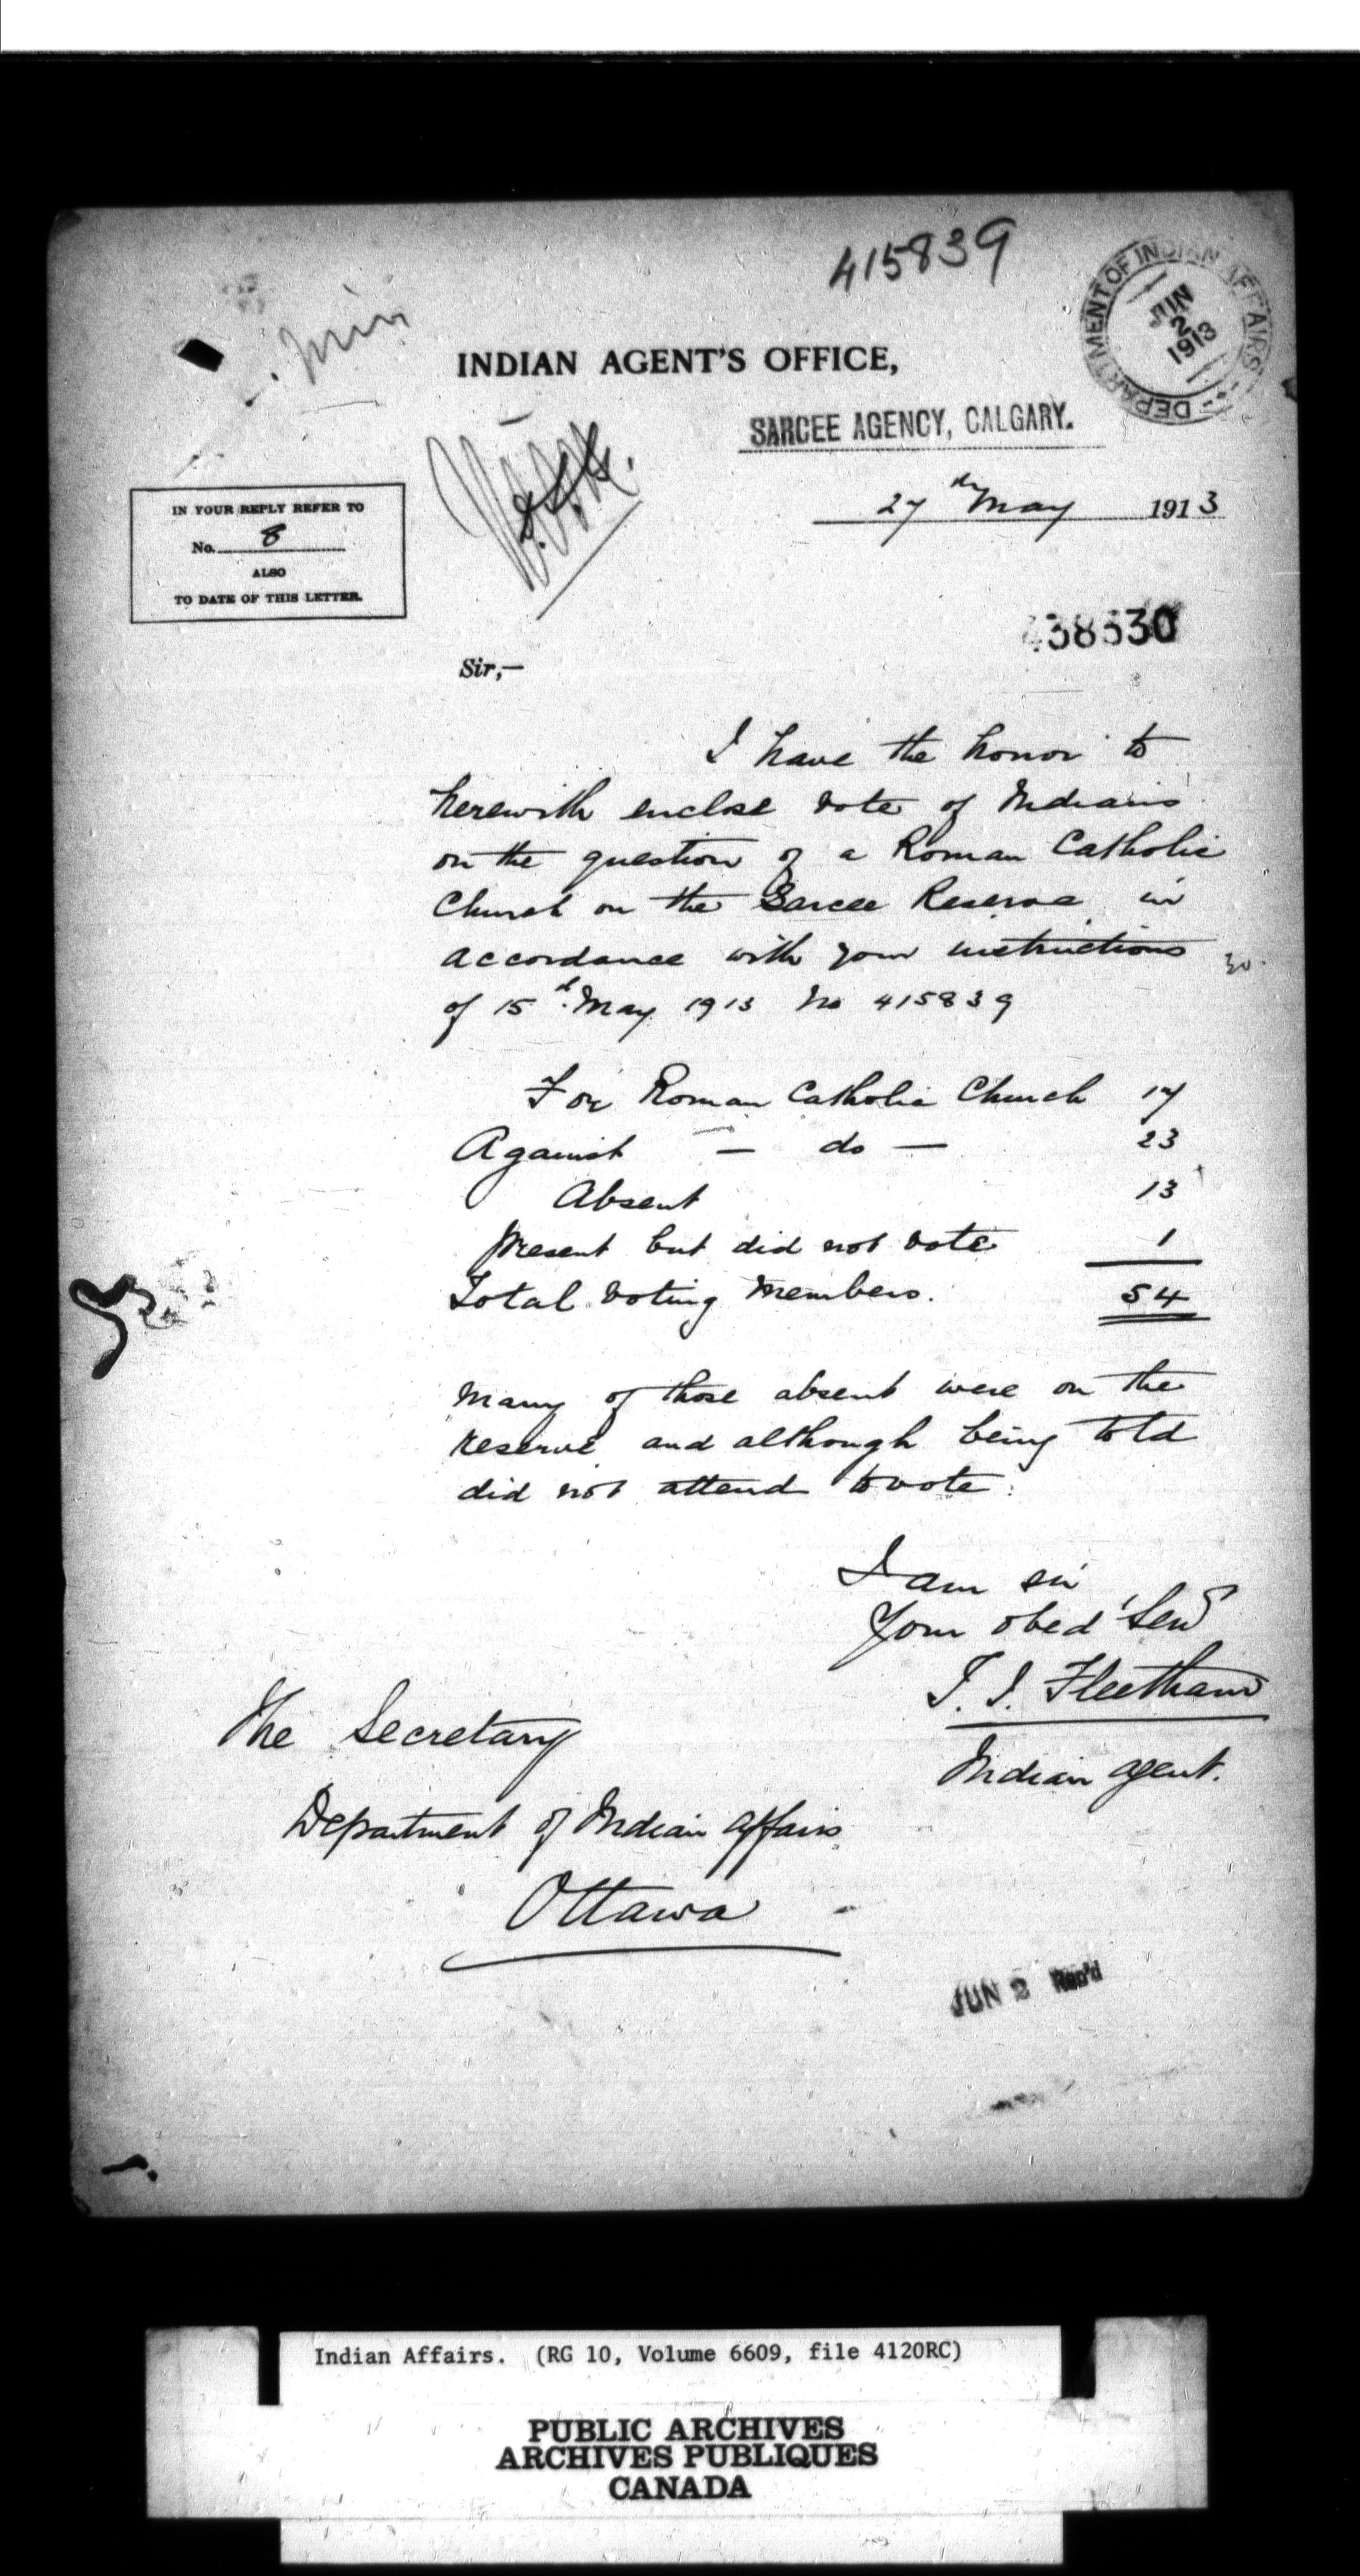 415839
DEPARTMENT OF INDIAN AFFAIRS
JUN
2
1913
INDIAN AGENT'S OFFICE,
SARCEE AGENCY, CALGARY.
27th May 1913
IN YOUR REPLY REFER TO
No. 8
ALSO
TO DATE OF THIS LETTER.
Sir,—
I have the honor to
herewith enclose vote of Indians
on the question of a Roman Catholic
Church on the Sarcee Reserve in
accordance with your instructions
of 15th May 1913 No 415839
For Roman Catholic Church 17
Against — do — 23
Absent 13
Present but did not vote 1
Total voting members. 54
Many of those absent were on the
reserve and although being told
did not attend to vote.
I am sir
Your obed Serv
T. J. Fleetham
Indian Agent.
The Secretary
Department of Indian Affairs
Ottawa
JUN 2 Rec'd
Indian Affairs. (RG 10, Volume 6609, file 4120RC)
PUBLIC ARCHIVES
ARCHIVES PUBLIQUES
CANADA